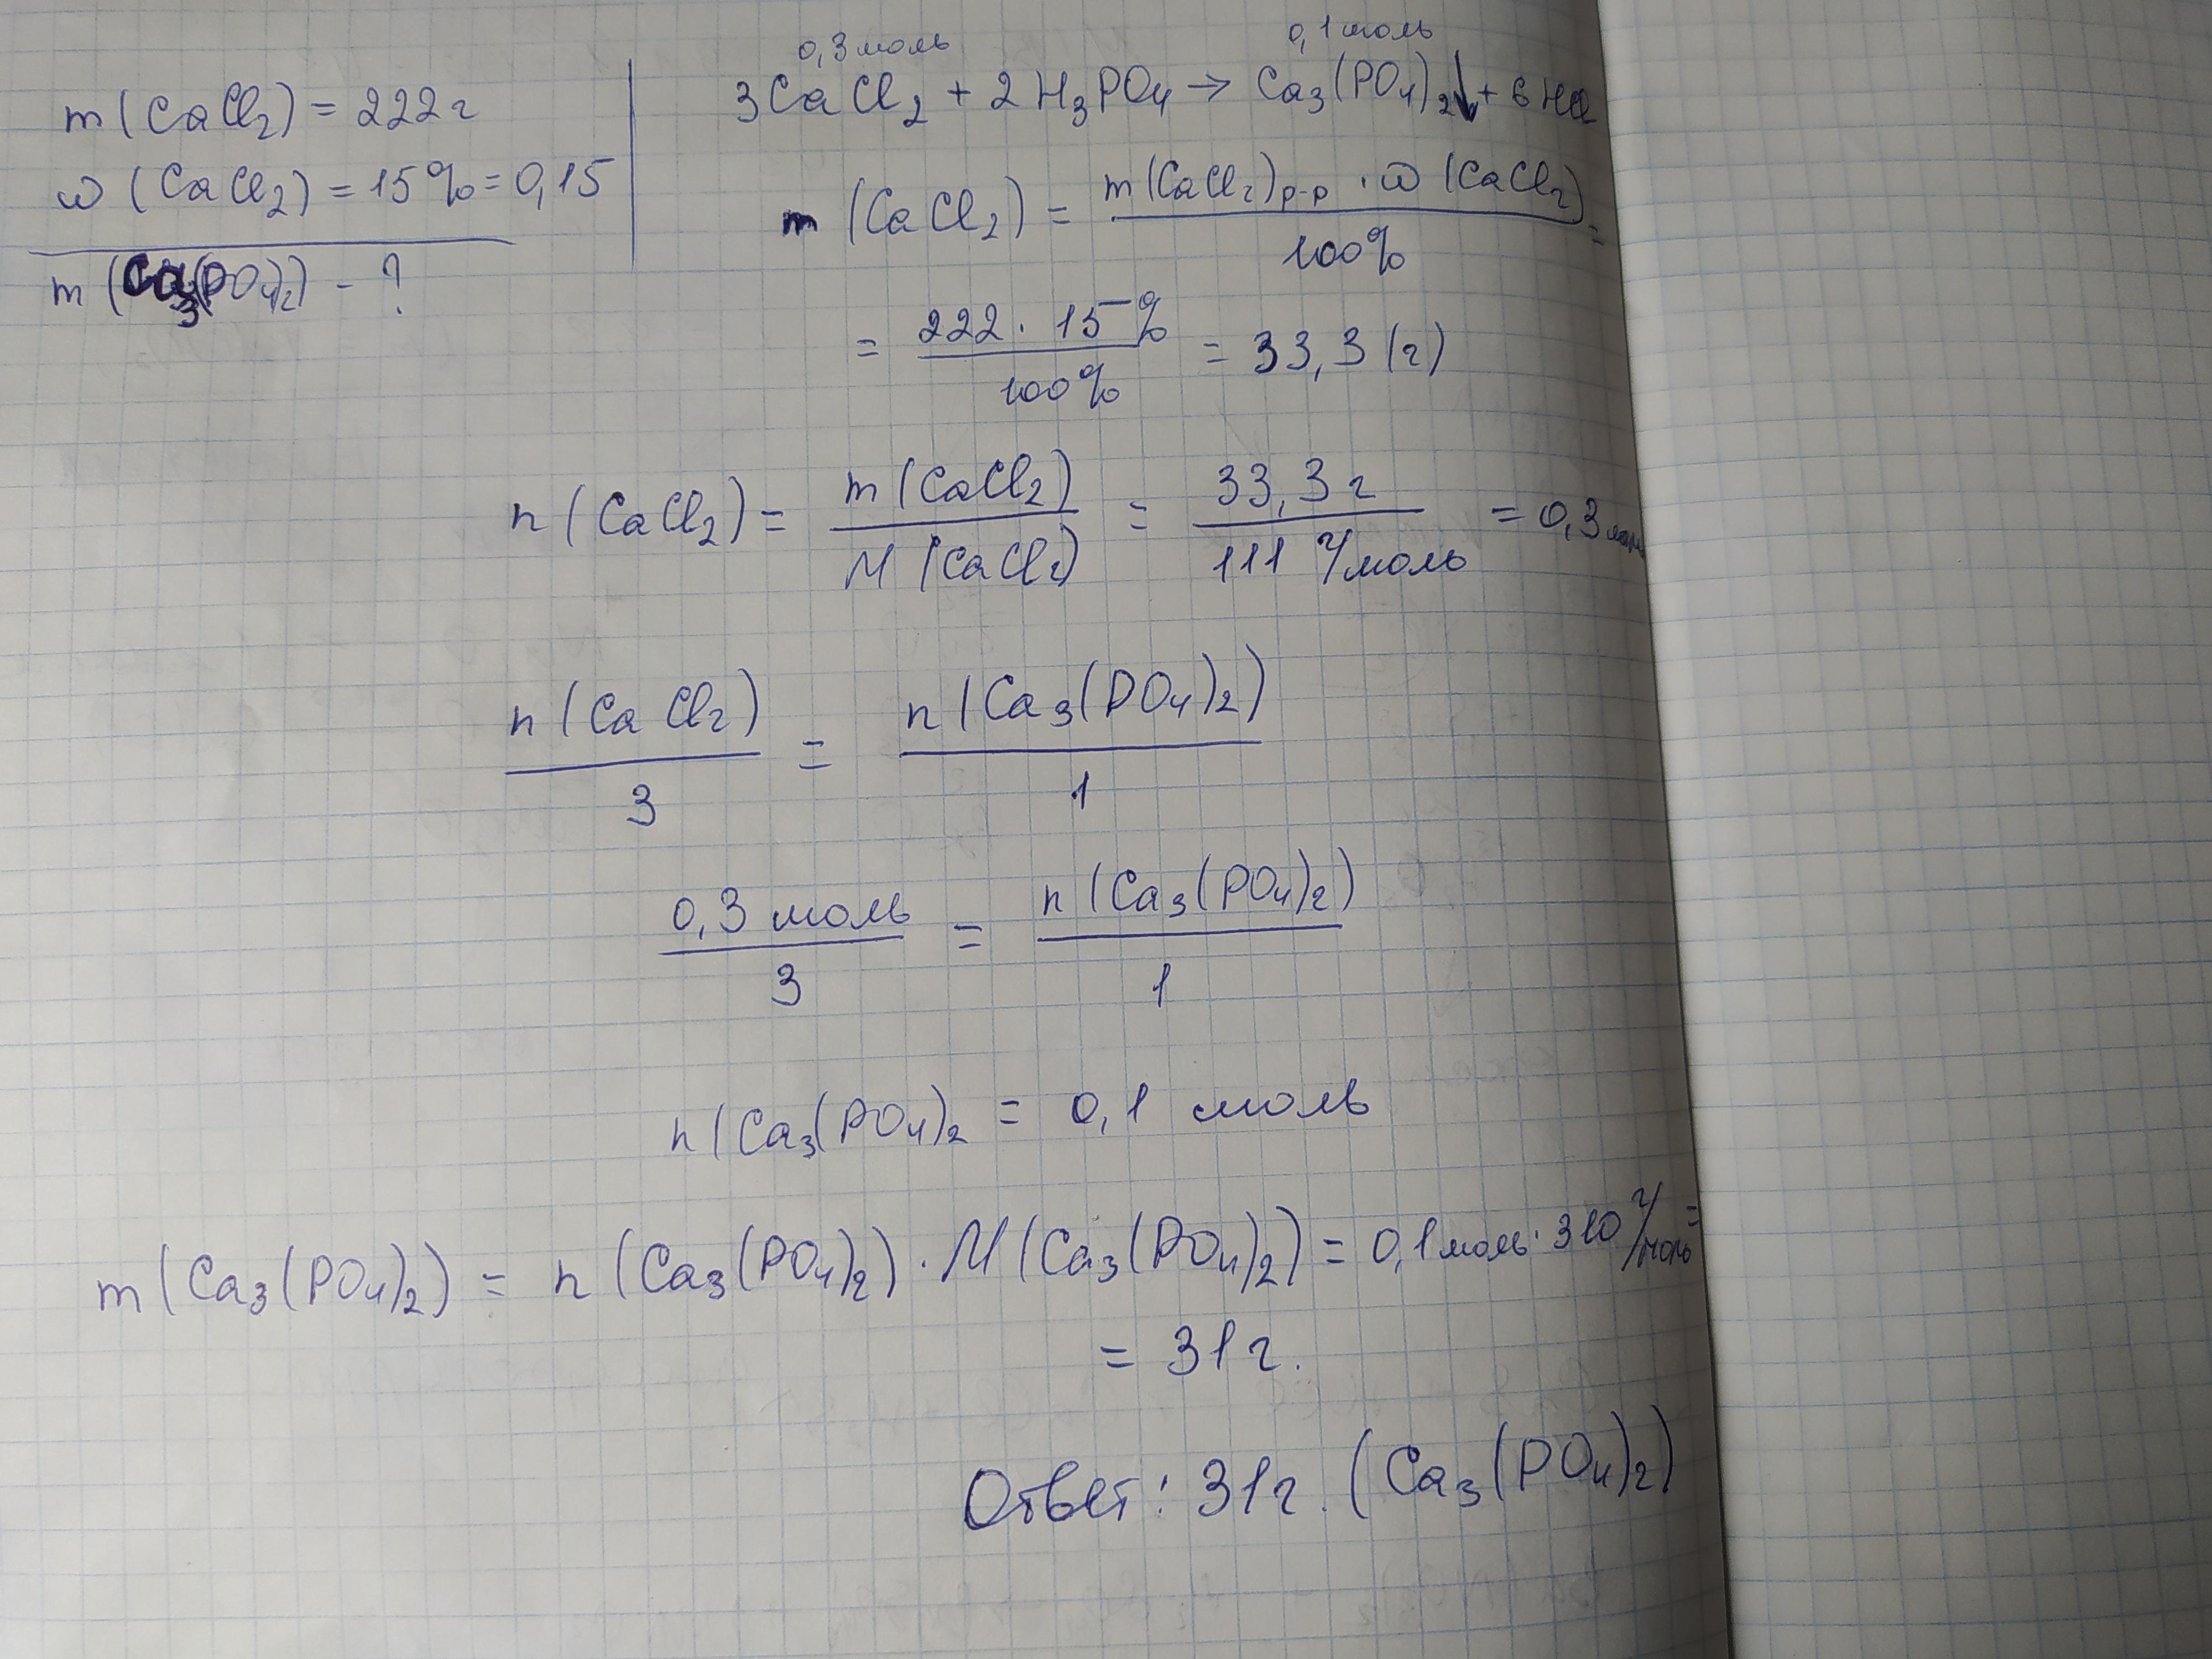 m(CaCl₂) = 222г
ω(CaCl₂) = 15% = 0,15
m(Ca₃(PO₄)₂) - ?
0,3 моль 0,1 моль
3CaCl₂ + 2H₃PO₄ → Ca₃(PO₄)₂↓ + 6HCl
m(CaCl₂) = m(CaCl₂)р-р · ω(CaCl₂) / 100% =
= 222 · 15% / 100% = 33,3 (г)
n(CaCl₂) = m(CaCl₂) / M(CaCl₂) = 33,3 г / 111 г/моль = 0,3 моль
n(CaCl₂) / 3 = n(Ca₃(PO₄)₂) / 1
0,3 моль / 3 = n(Ca₃(PO₄)₂) / 1
n(Ca₃(PO₄)₂ = 0,1 моль
m(Ca₃(PO₄)₂) = n(Ca₃(PO₄)₂) · M(Ca₃(PO₄)₂) = 0,1 моль · 310 г/моль =
= 31г.
Ответ: 31г. (Ca₃(PO₄)₂)